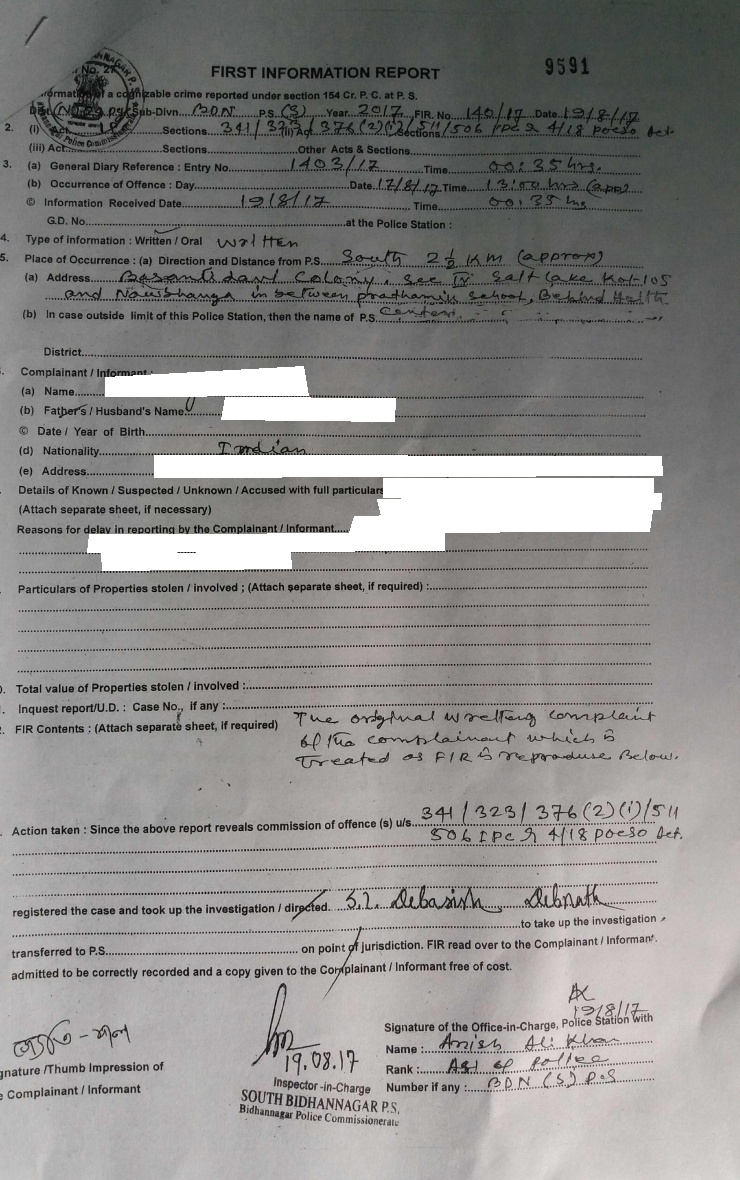 9591
FIRST INFORMATION REPORT
No. 27
cognizable crime reported under section 154 Cr. P. C. at P. S.
Sub-Divn. BDN P.S (S) Year 2017 FIR. No 140/17 Date 19/8/17
2. (i) Act Sections 341/323/376(2)(i)/511/506 IPC & 4/18 POCSO Act.
(iii) Act Sections Other Acts & Sections
3. (a) General Diary Reference : Entry No. 1403/17 Time 00:35 hrs.
(b) Occurrence of Offence : Day Date 17/8/17 Time 13:00 hrs (app)
© Information Received Date 19/8/17 Time 00:35 hrs
G.D. No. at the Police Station :
4. Type of information : Written / Oral Written
5. Place of Occurrence : (a) Direction and Distance from P.S. South 2½ KM (approx)
(a) Address Colony, Sec IV Salt Lake Kol-105
and in between school, Behind Health
(b) In case outside limit of this Police Station, then the name of P.S.
District
Complainant / Informant :
(a) Name
(b) Father's / Husband's Name
© Date / Year of Birth
(d) Nationality Indian
(e) Address
Details of Known / Suspected / Unknown / Accused with full particulars
(Attach separate sheet, if necessary)
Reasons for delay in reporting by the Complainant / Informant
Particulars of Properties stolen / involved ; (Attach separate sheet, if required) :
Total value of Properties stolen / involved :
Inquest report/U.D. : Case No., if any :
FIR Contents : (Attach separate sheet, if required) The original writting complaint
of the complainant which is
treated as FIR is reproduse Below.
Action taken : Since the above report reveals commission of offence (s) u/s 341/323/376(2)(i)/511
506 IPC & 4/18 POCSO Act.
registered the case and took up the investigation / directed. S.I. Debasish Debnath
to take up the investigation
transferred to P.S. on point of jurisdiction. FIR read over to the Complainant / Informant.
admitted to be correctly recorded and a copy given to the Complainant / Informant free of cost.
19/8/17
19.08.17
Signature of the Office-in-Charge, Police Station with
Name : Anish Ali Khan
Rank : ASI of police
Number if any : BDN (S) P.S
Inspector-in-Charge
SOUTH BIDHANNAGAR P.S.
Bidhannagar Police Commissionerate
Signature /Thumb Impression of
Complainant / Informant